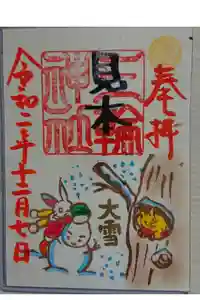 奉拝
三輪
神社
見本
令和二年十二月七日
大雪